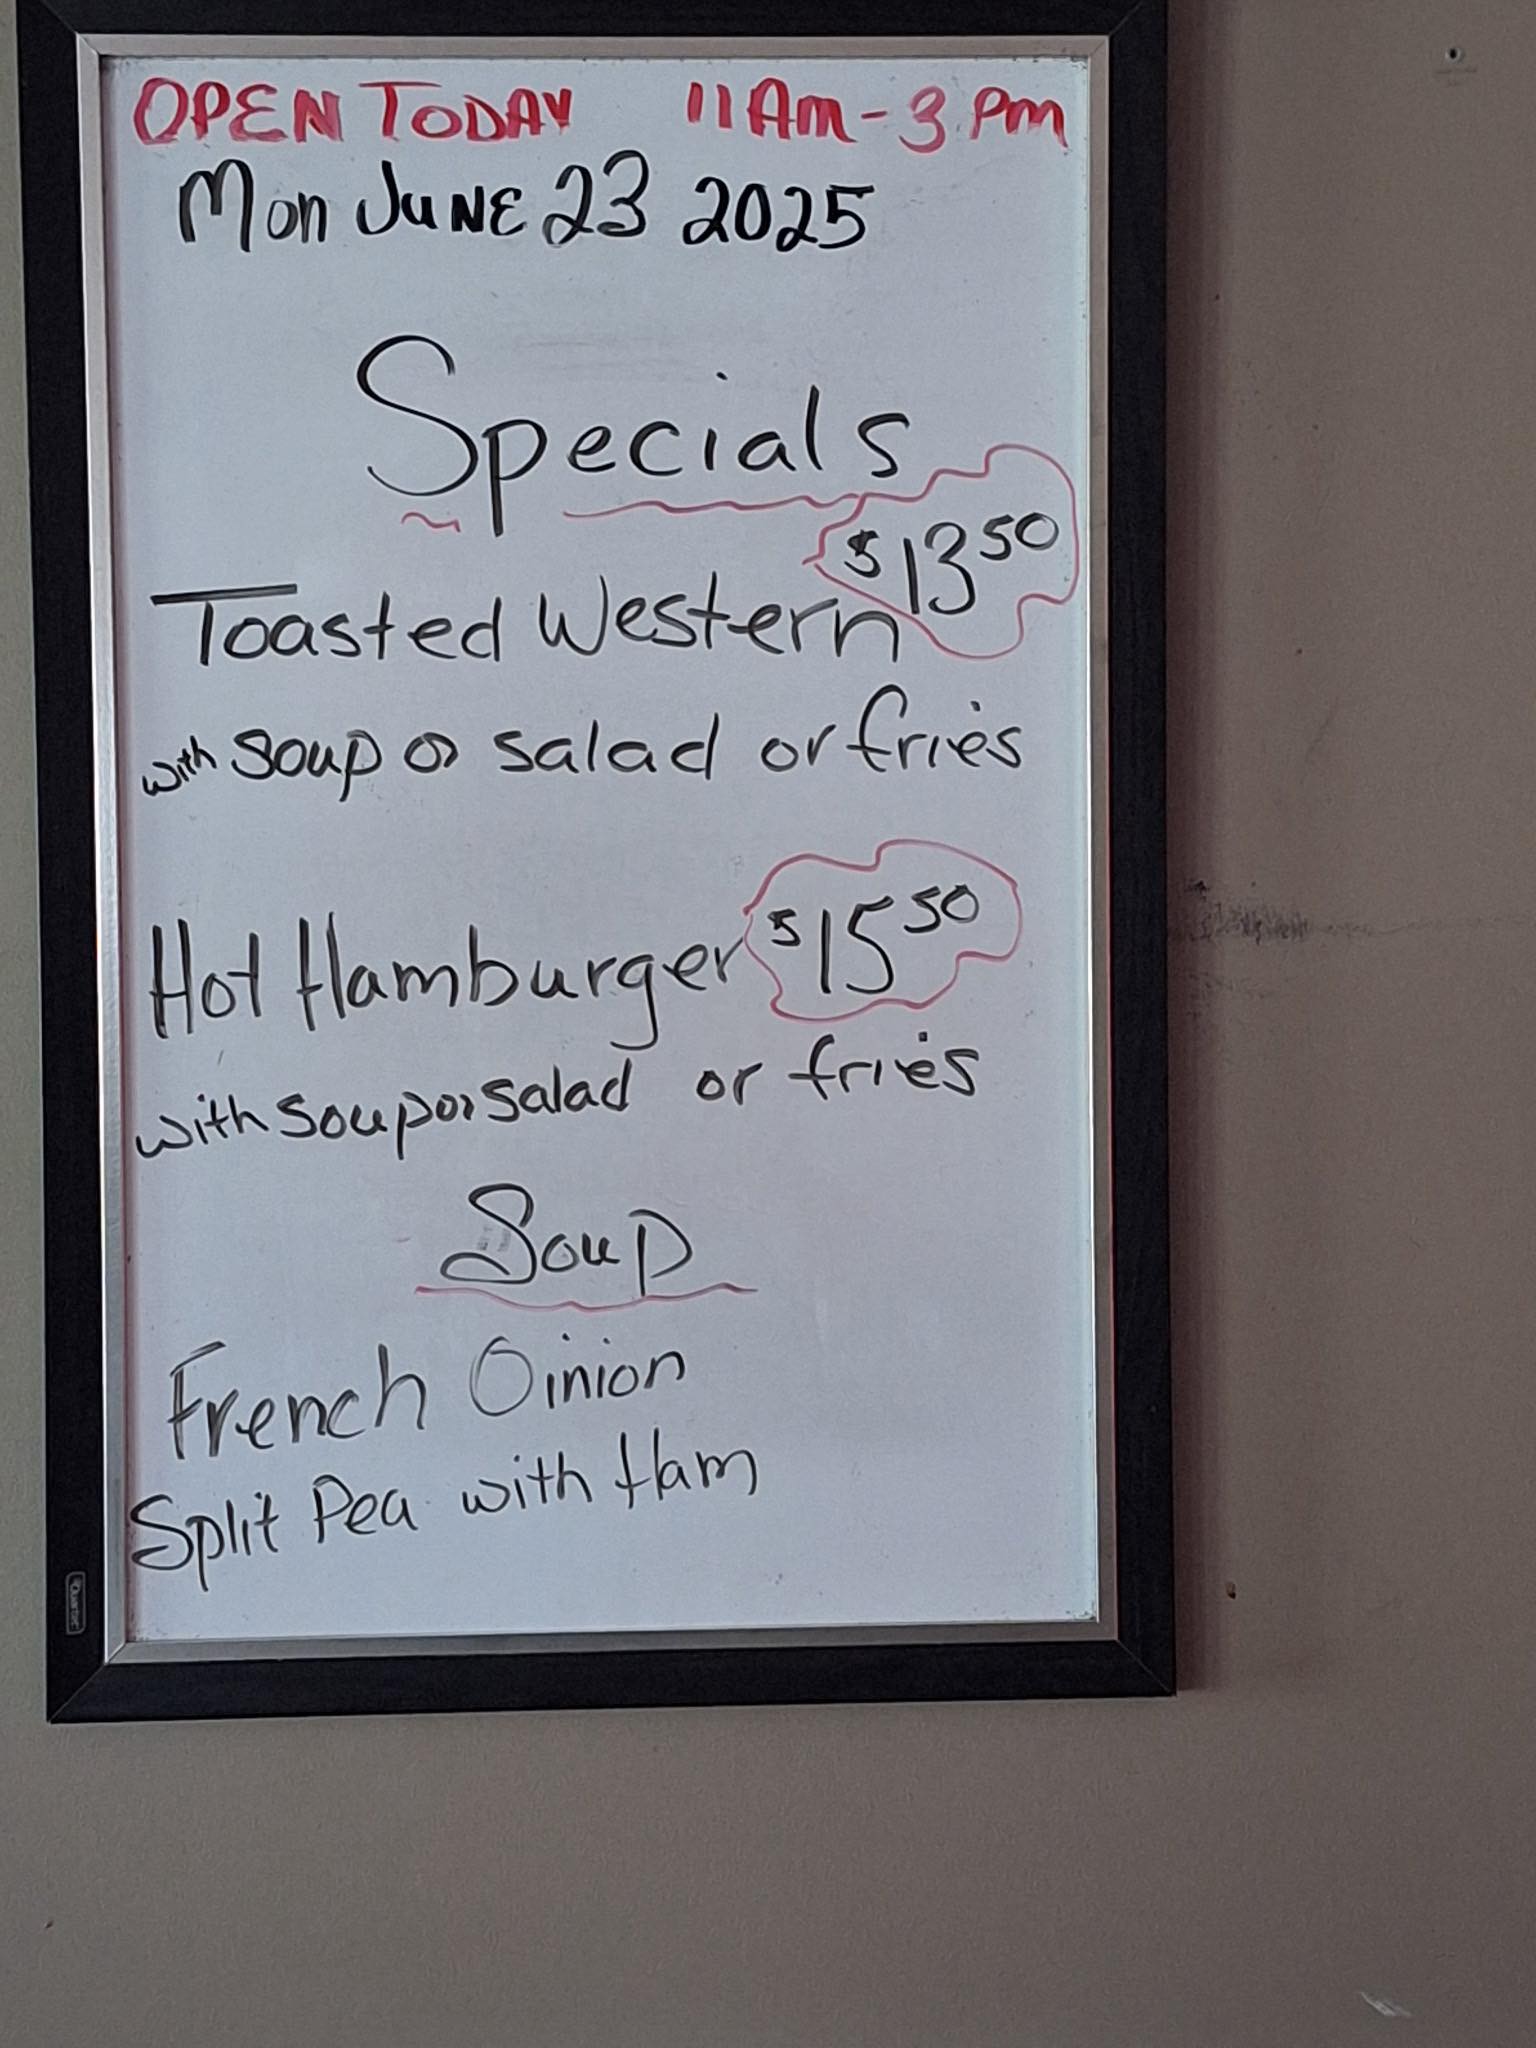 OPEN TODAY 11 AM - 3 PM
Mon JUNE 23 2025
Specials
$13 50
Toasted Western
with soup or salad or fries
Hot Hamburger $15 50
with soup or salad or fries
Soup
French Oinion
Split Pea with Ham
Quartet